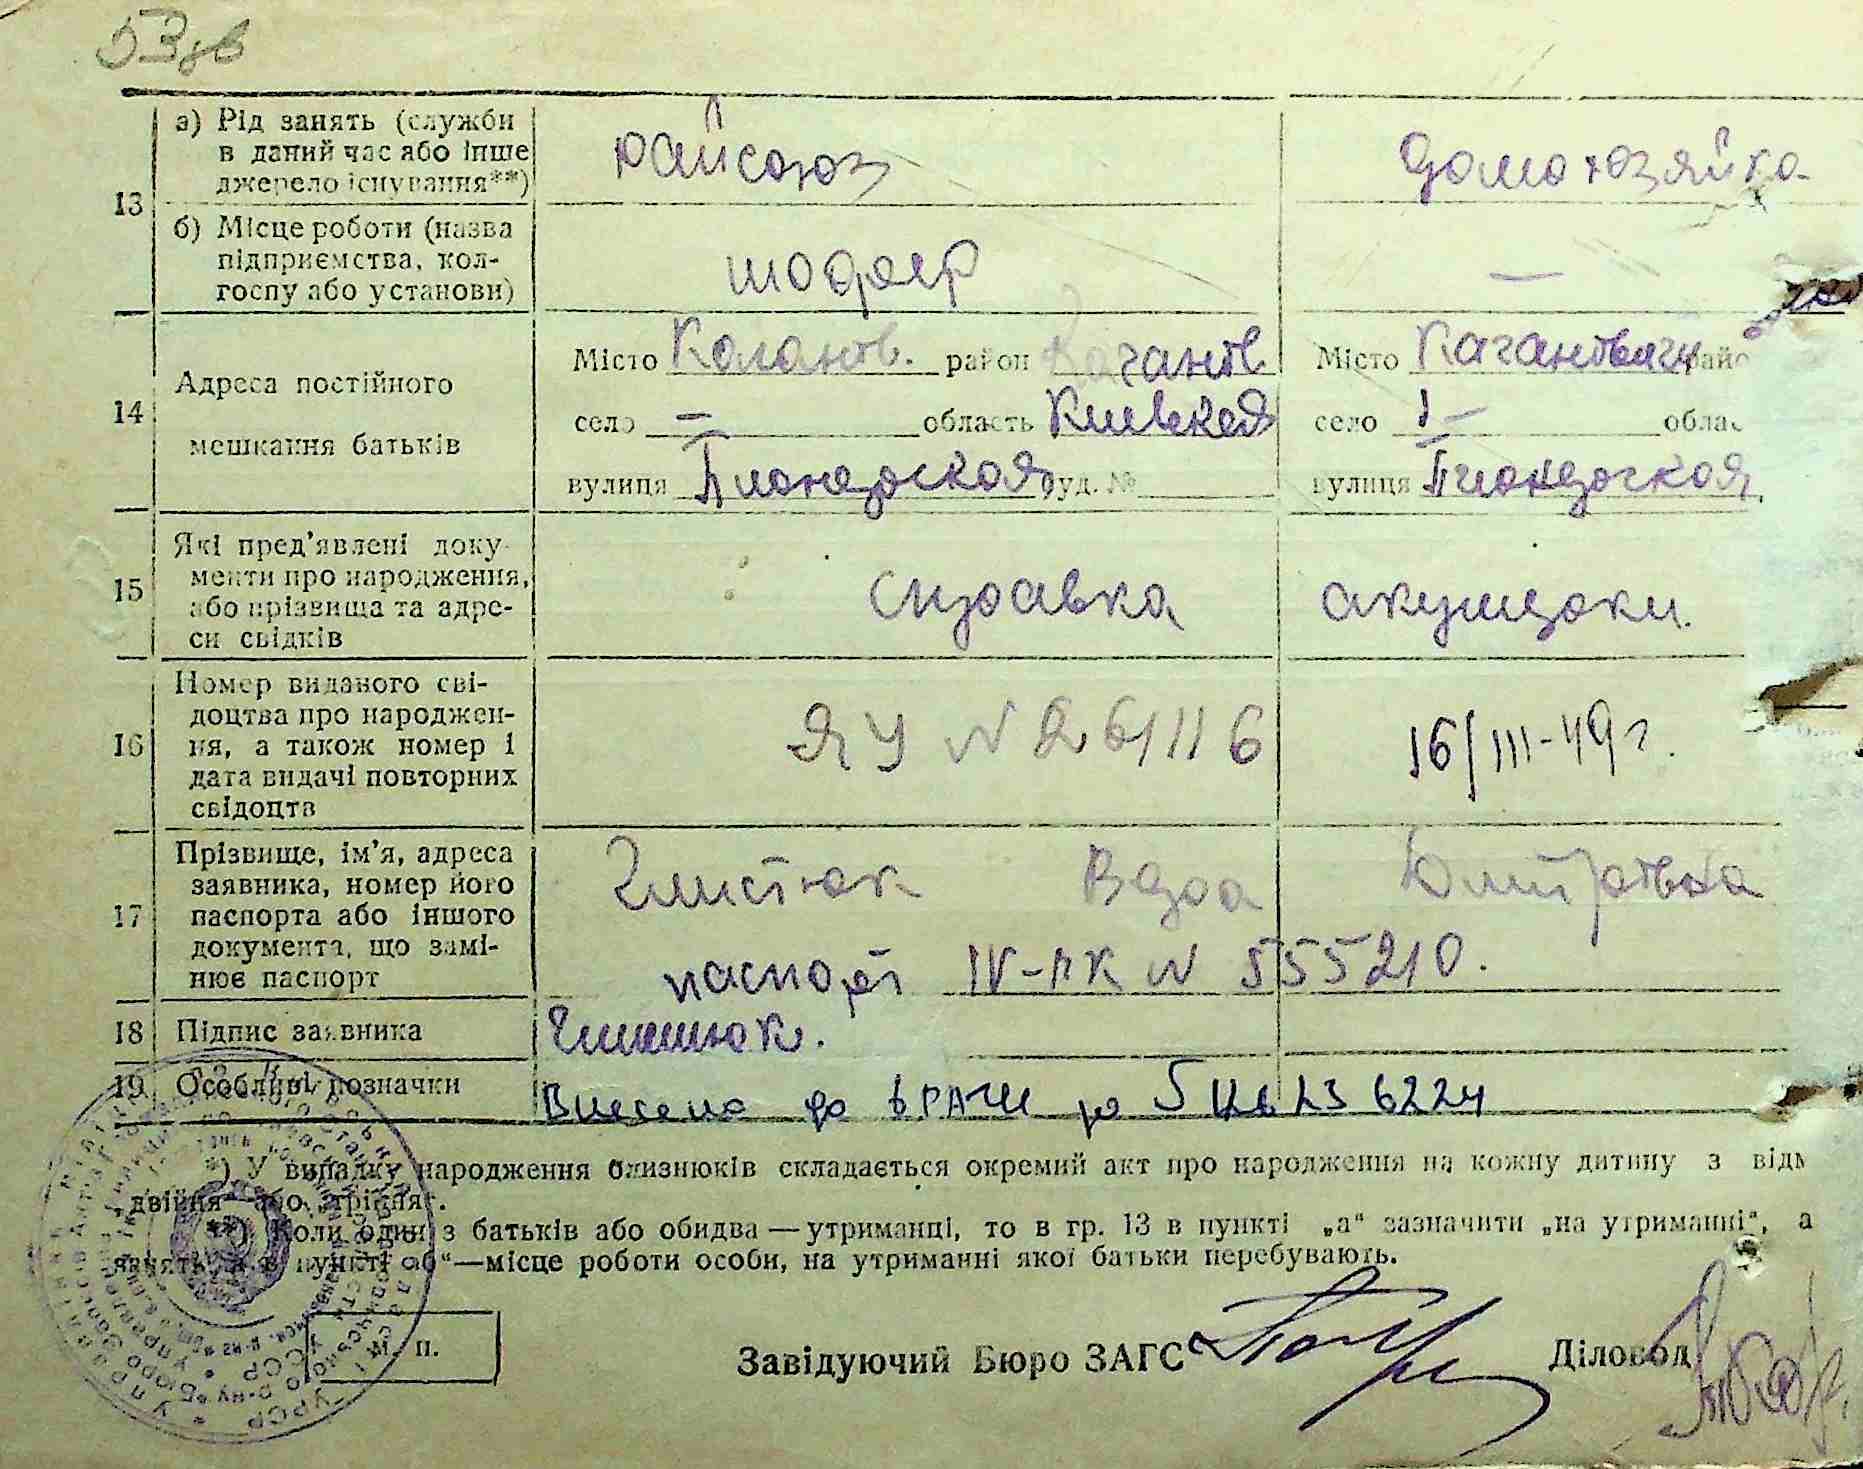 53зв
а) Рід занять (служби
в даний час або інше
джерело існування**)
райсоюз
домохозяйка
13
б) Місце роботи (назва
підприємства, кол-
госпу або установи)
шофер
—
14
Адреса постійного
мешкання батьків
Місто Коганов. район Каганов
Місто Каганович райо
село — область Киевская
село — облас
вулиця Пионерская буд. №
вулиця Пионерская
15
Які пред'явлені доку-
менти про народження,
або прізвища та адре-
си свідків
справка акушерки.
16
Номер виданого сві-
доцтва про народжен-
ня, а також номер і
дата видачі повторних
свідоцтв
ЯУ N 261116
16/III-49 г.
17
Прізвище, ім'я, адреса
заявника, номер його
паспорта або іншого
документа, що замі-
нює паспорт
Чмистюк Вера Дмитровна
паспорт IV-ПК N 555210.
18 Підпис заявника
19 Особливі позначки
Внесено до ДРАЦС
*) У випадку народження близнюків складається окремий акт про народження на кожну дитину з відм
„двійня" або „трійня".
**) Коли один з батьків або обидва — утриманці, то в гр. 13 в пункті „а" зазначити „на утриманні", а
занять, а в пункті „б"—місце роботи особи, на утриманні якої батьки перебувають.
М. п.
Завідуючий Бюро ЗАГС
Діловод